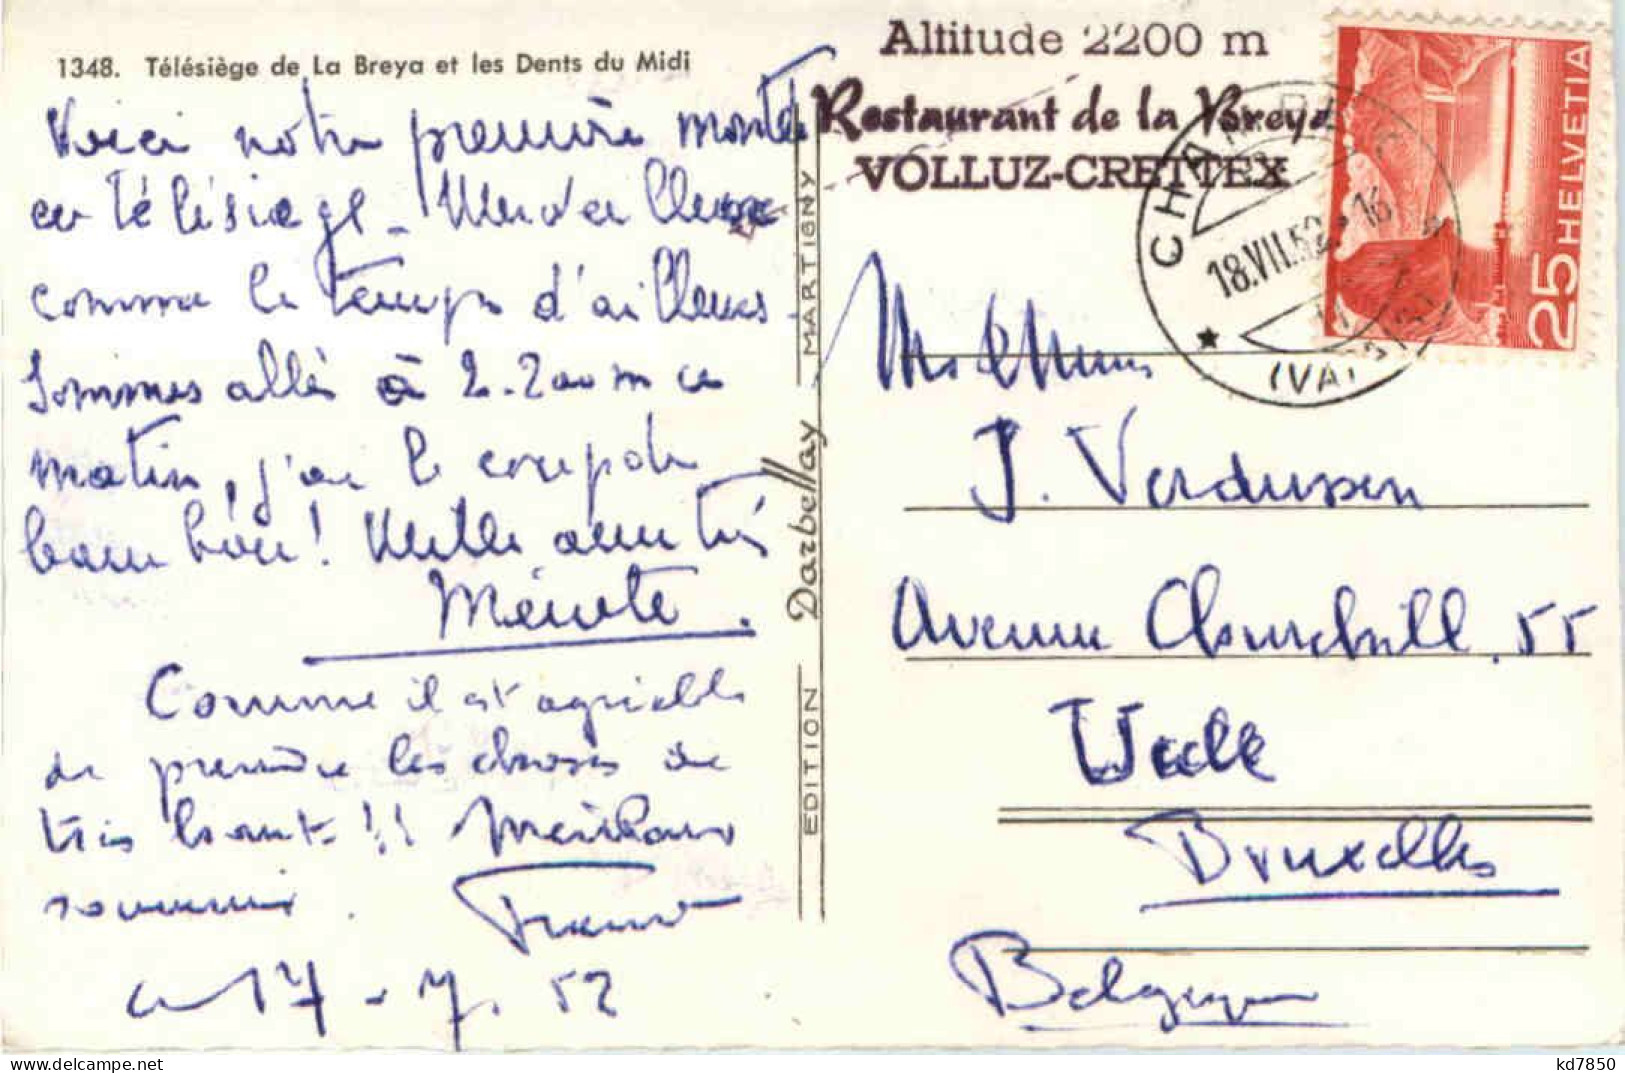 1348. Télésiège de La Breya et les Dents du Midi
Voici notre première montée
en télésiège. Merveilleuse
comme le temps d'ailleurs.
Sommes allés à 2.200 m ce
matin, j'ai le coup de
bon ! Mille amitiés
Comme il est agréable
de prendre les choses de
très haut !! Meilleur
souvenir.
17-7.52
EDITION Darbellay MARTIGNY
Altitude 2200 m
Restaurant de la Breya
VOLLUZ-CRETTEX
CHAMPEX
18.VII.52-16
HELVETIA
25
J. Verdussen
Avenue Churchill. 55
Uccle
Bruxelles
Belgique
kd7850